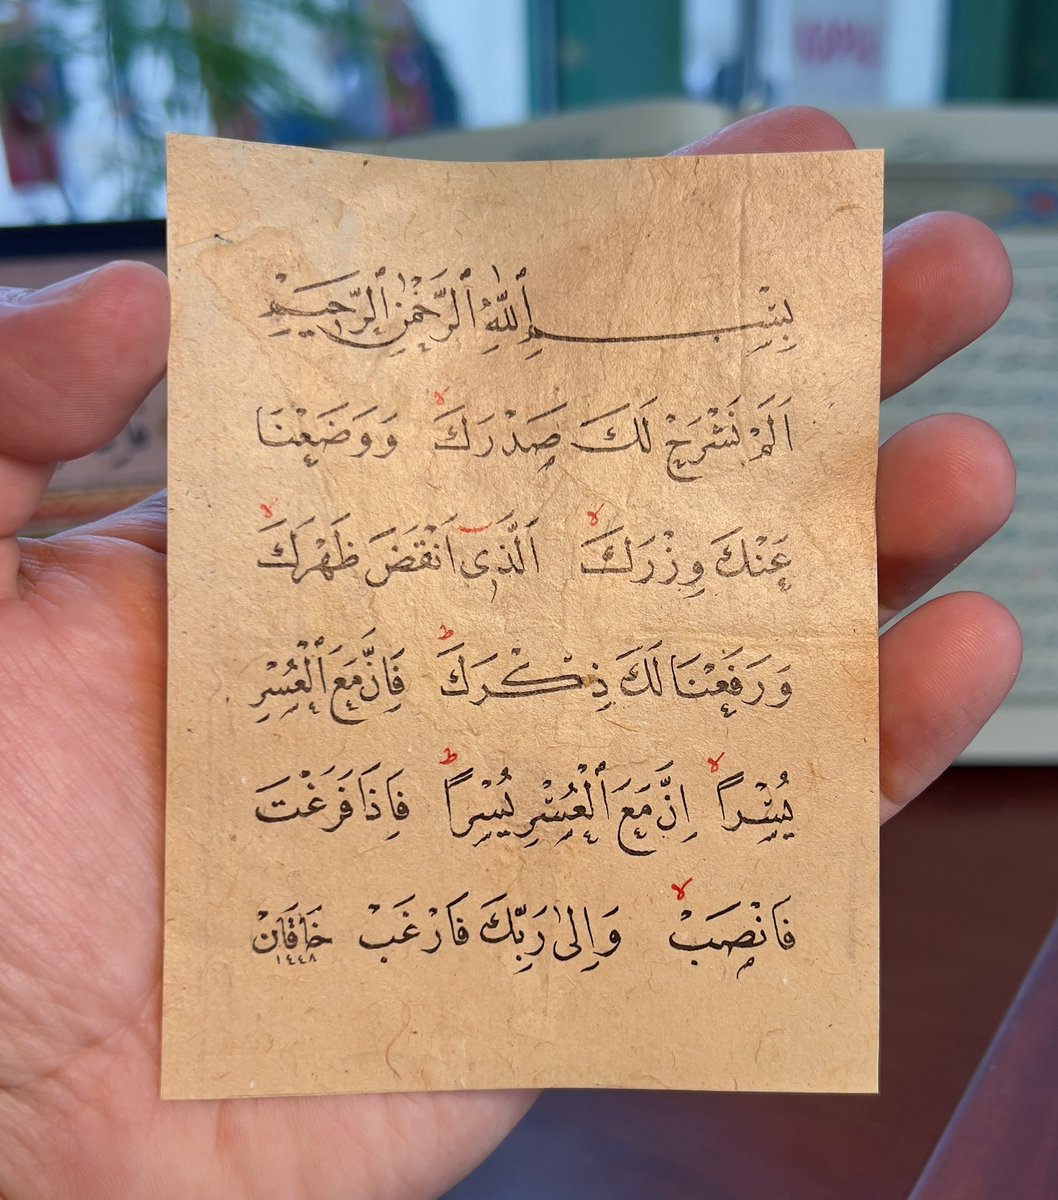 بِسْمِ ٱللّٰهِ ٱلرَّحْمٰنِ ٱلرَّحِيمِ
اَلَمْ نَشْرَحْ لَكَ صَدْرَكَ ۙ وَوَضَعْنَا
عَنْكَ وِزْرَكَ ۙ اَلَّذِىٓ اَنْقَضَ ظَهْرَكَ ۙ
وَرَفَعْنَا لَكَ ذِكْرَكَ ۜ فَاِنَّ مَعَ ٱلْعُسْرِ
يُسْراً ۙ اِنَّ مَعَ ٱلْعُسْرِ يُسْراً ۜ فَاِذَا فَرَغْتَ
فَانْصَبْ ۙ وَاِلٰى رَبِّكَ فَارْغَبْ خَاقَانْ
١٤٤٨